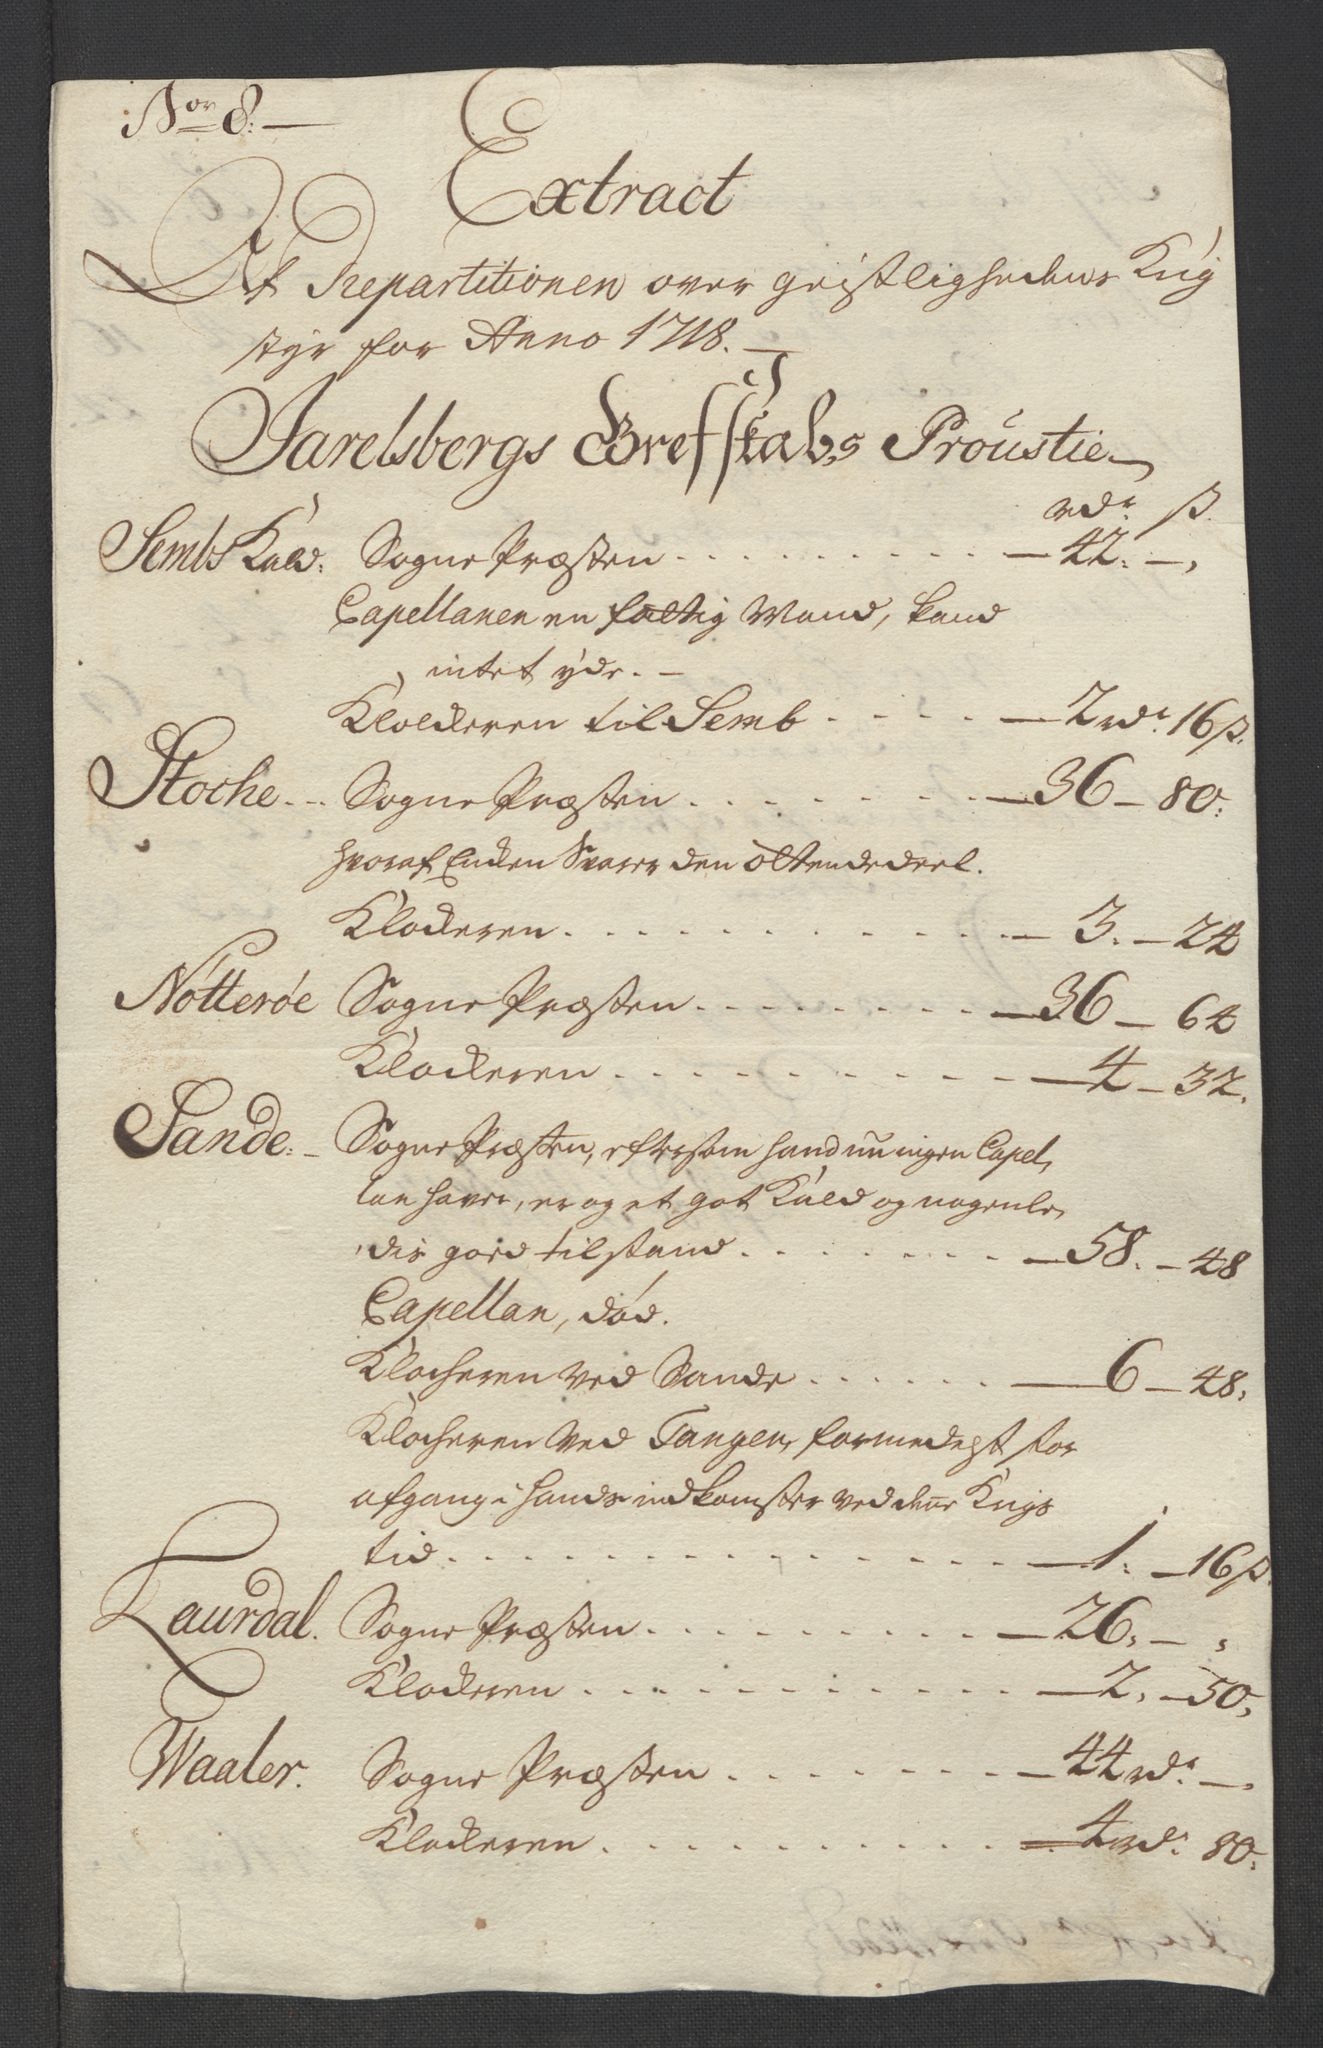 Nor 8. —
Extract
Af Repartitionen over geistlighedens Krig
styr for Anno 1718. —
Jarelsbergs Grefskabs Proustie
rdr. ß.
Sembs Kald. Sogne Præsten . . . . . . . . . . — 42. —,
Capellanen en fattig Mand, kand
intet yde. —
Klockeren til Semb . . . . — 2 rdr. 16 ß.
Stocke . . . Sogne Præsten . . . . . . . . — 36 — 80.
hvoraf Encken Svarer den ottende deel.
Klockeren . . . . . . . . . . . . — 3. — 24
Nótterøe Sogne Præsten . . . . . . . . — 36 — 64
Klockeren . . . . . . . . . . — 4 — 32.
Sande. — Sogne Præsten, eftersom hand nu ingen Capel,
lan haver, er og et got Kald og nogenle,
dis goed tilstand . . . . . . . — 58. — 48
Capellan, død.
Klocheren ved Sande . . . . . . — 6 — 48.
Klocheren ved Tangen, formedelst for
afgang i hands indkomster ved denne Krigs
tid . . . . . . . . . . . . . . . — 1. — 16 ß.
Laurdal. Sogne Præsten . . . . . . . . . — 26. — ,
Klockeren . . . . . . . . . . . . — 2. — 50.
Waaler. Sogne Præsten . . . . . . . — 44 rdr. —.
Klockeren . . . . . . . . . . . — 4 rdr. 80.